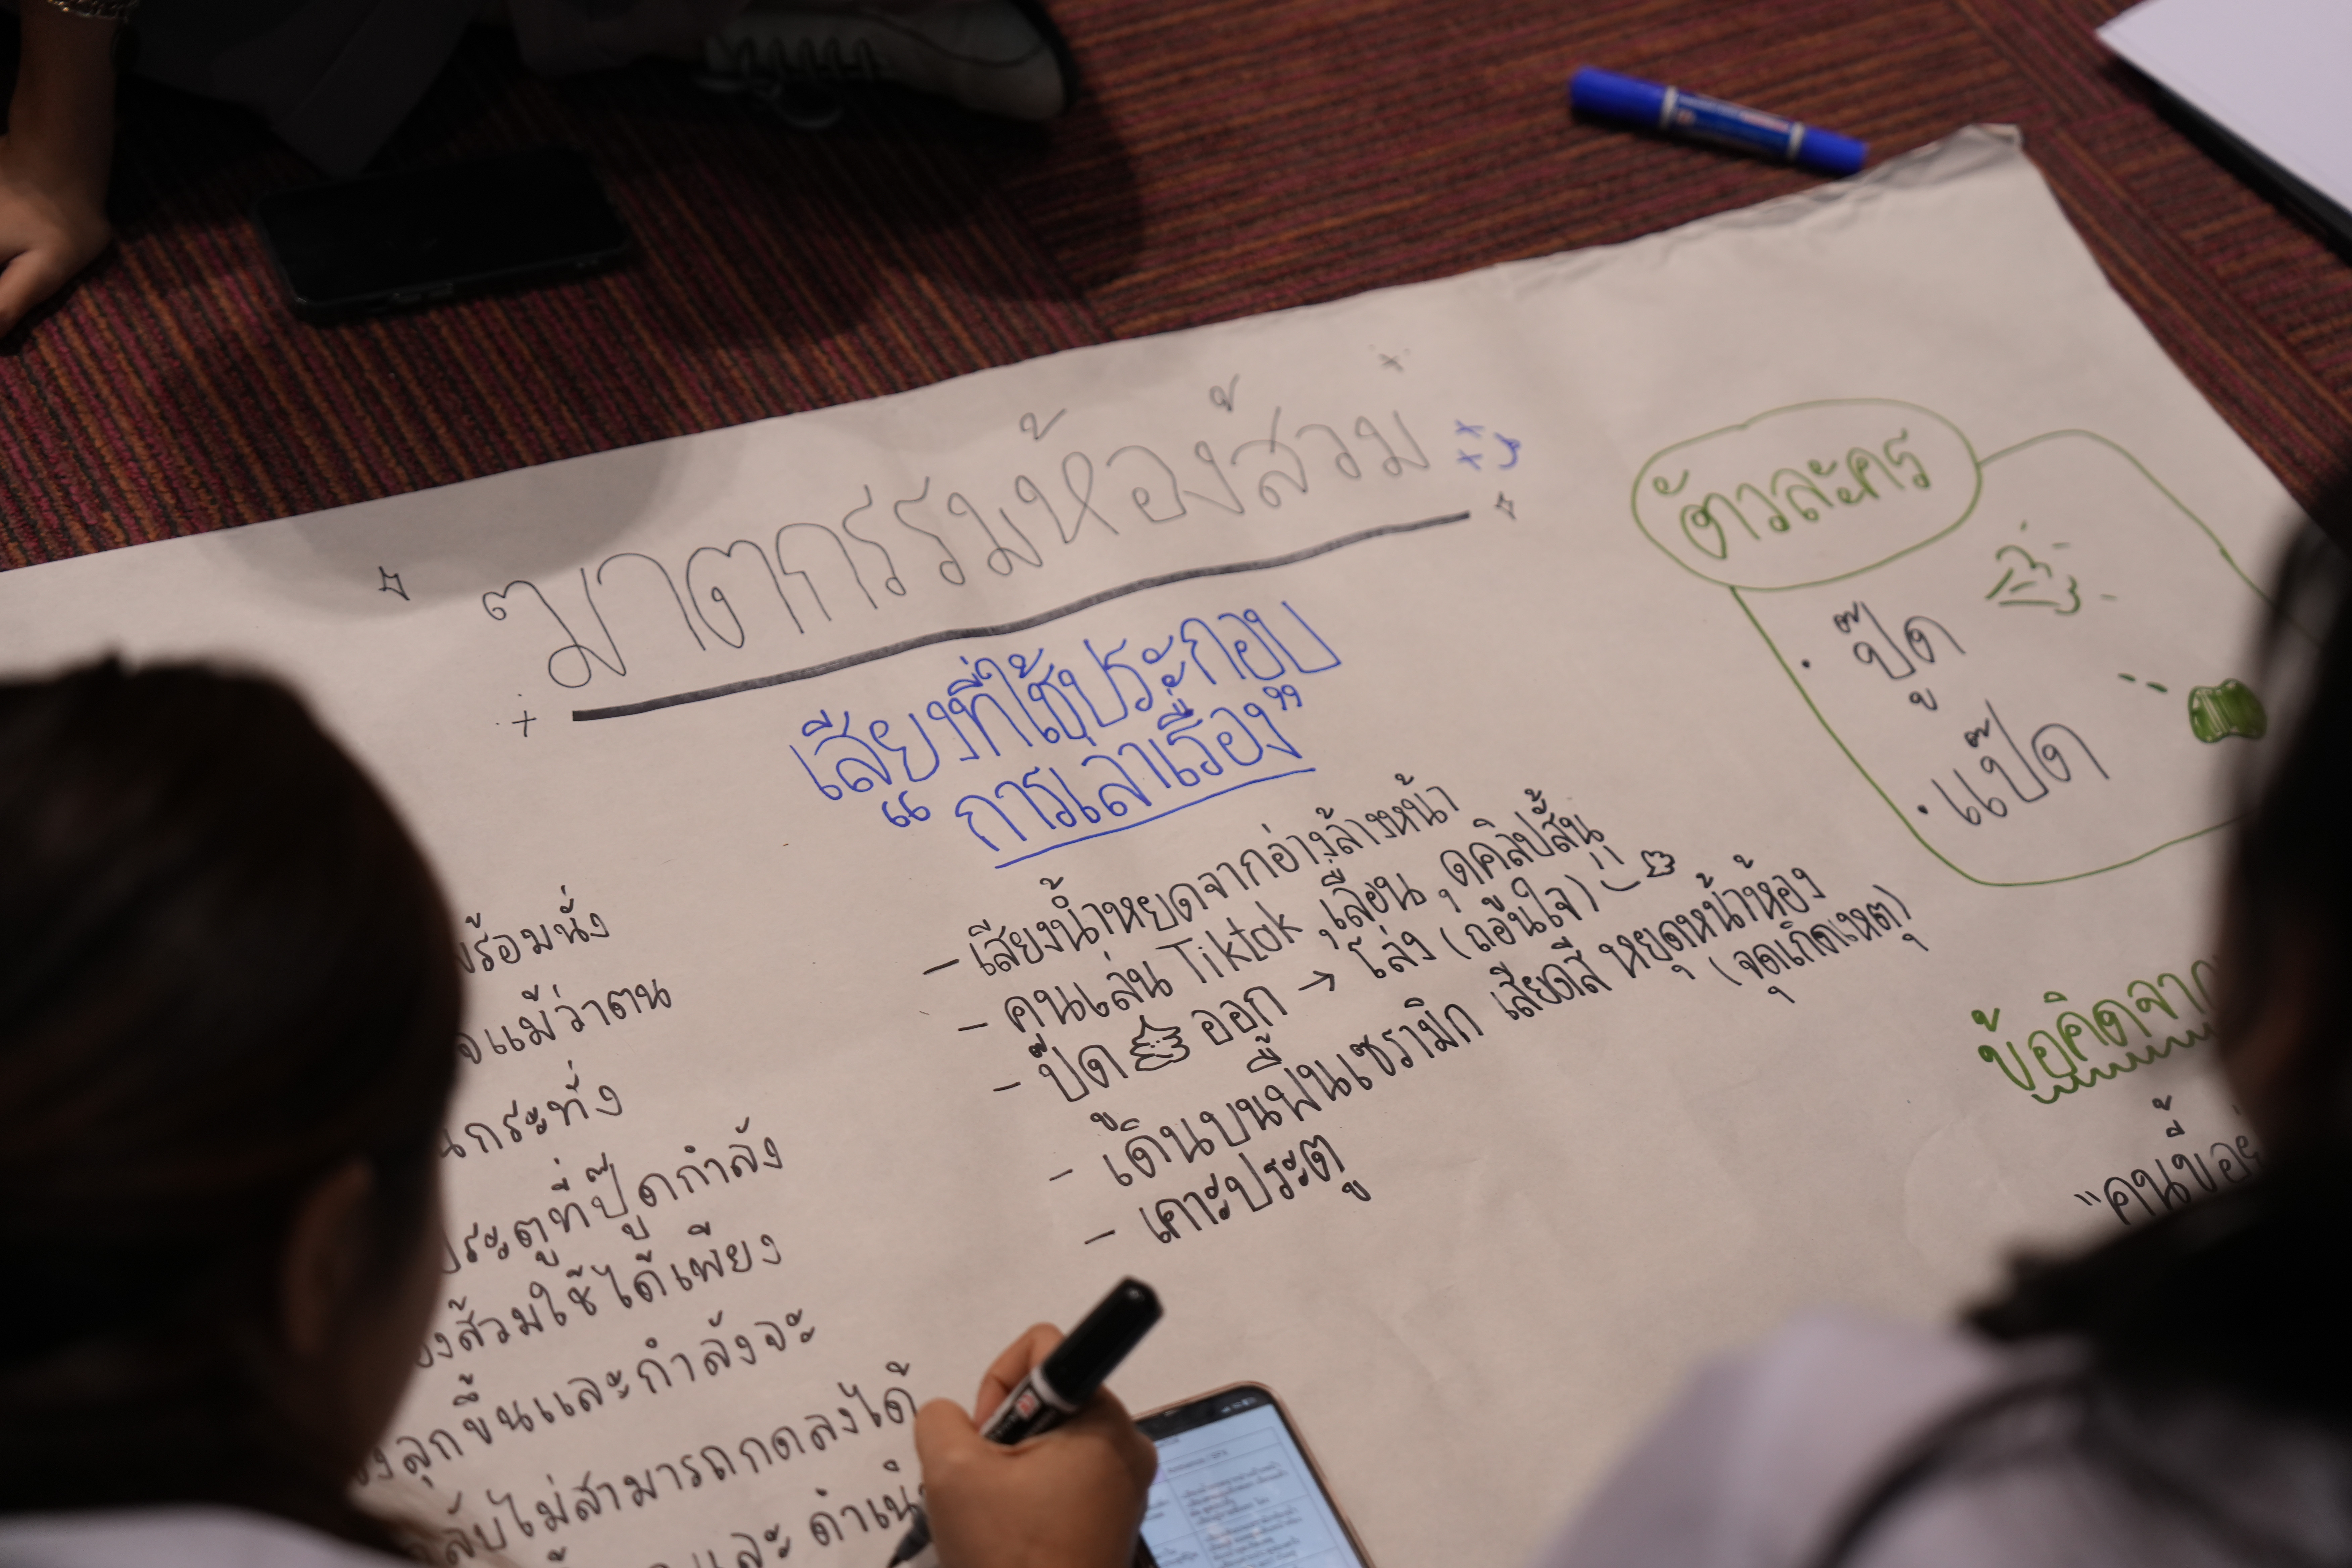 ฆาตกรรมห้องส้วม
เสียงที่ใช้ประกอบ
“การเล่าเรื่อง”
- เสียงน้ำหยดจากอ่างล้างหน้า
- คนเล่น Tiktok เลื่อน ดูคลิปสั้น
- ปี๊ด ออก → โล่ง (ถอนใจ)
- เดินบนพื้นเซรามิก เสียดสี หยุดหน้าห้อง
(จุดเกิดเหตุ)
- เคาะประตู
ตัวละคร
· ปู๊ด
· แป๊ด
ข้อคิดจาก
พร้อมนั่ง
แม้ว่าตน
กระทั่ง
ประตูที่ปู๊ดกำลัง
ส้วมใช้ได้เพียง
ลุกขึ้นและกำลังจะ
ไม่สามารถกดลงได้
และ